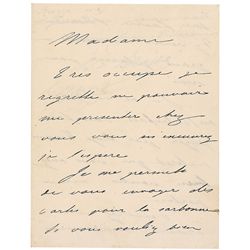 Madame
Tres occupé je
regrette ne pouvoir
me presenter chez
vous vous m'excuserez
je l'espere.
Je me permets
de vous envoyer des
cartes pour la sorbonne
si vous voulez bien